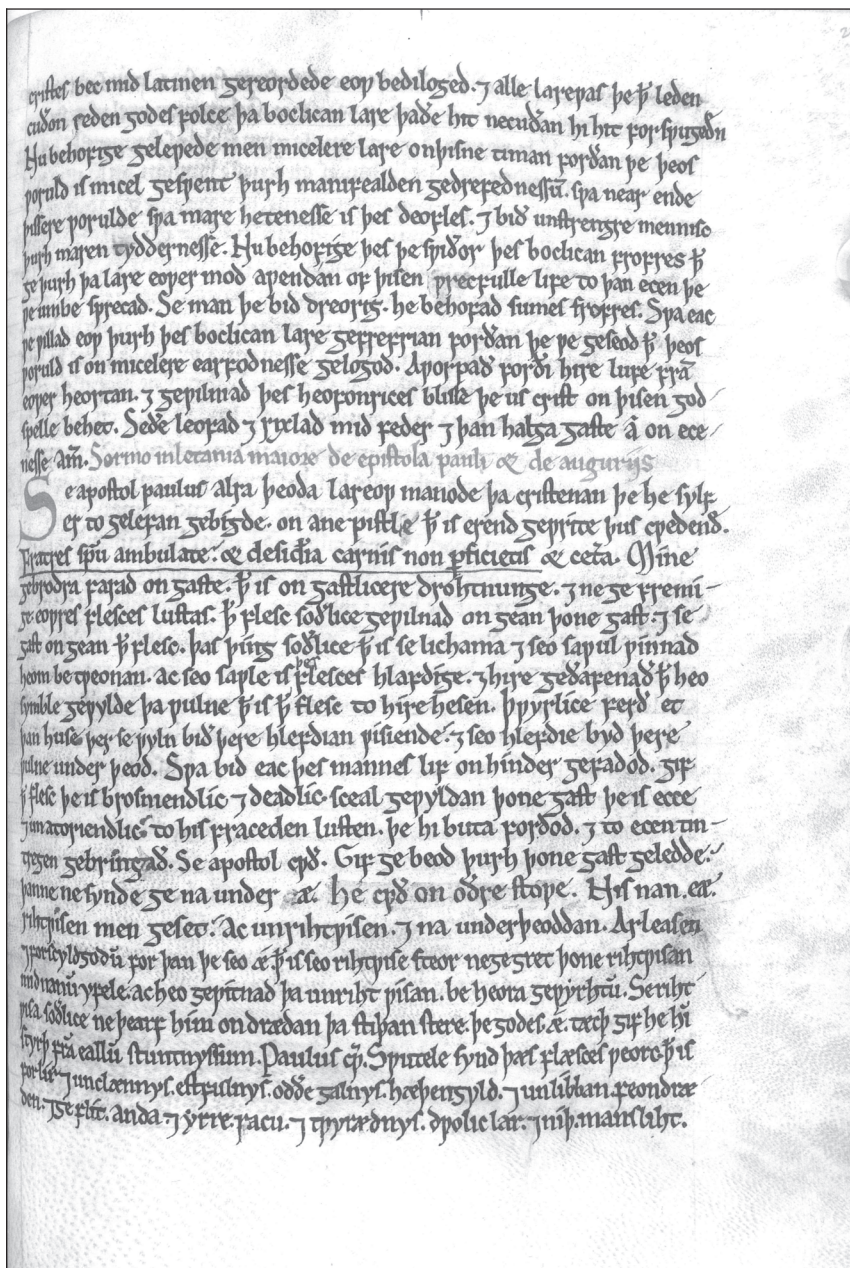 cristes bec mid latinen gereordede eoƿ bediloged. ⁊ alle lareƿas þe ꝥ leden
cuðon seden godes folce þa boclican lare þaðe hit necuðan hi hit forsƿugedū
Nu behofige geleƿede men micelere lare onþisne timan forðan þe þeos
ƿoruld is micel gesƿent þurh manifealden gedrefednessū. sƿa near ende
þissere ƿorulde sƿa mare hetenesse is þes deofles. ⁊ bið unstrengre mennisc
þurh maren tyddernesse. Nu behofige þes þe sƿiðor þes boclican frofres ꝥ
ge þurh þa lare eoƿer mod aƿendan of þisen ƿrecfulle life to þan ecen þe
ƿe umbe sprecað. Se man þe bið dreorig. he behofað sumes frofres. Sƿa eac
ƿe ƿillað eoƿ þurh þes boclican lare gefrefrian forðan þe ƿe geseoð ꝥ þeos
ƿoruld is on micelere earfodnesse gelogod. Aƿorpað forði hire lufe frā
eoƿer heortan. ⁊ geƿilniað þes heofonrices blisse þe us crist on þisen god
spelle behet. Seðe leofað ⁊ rixlað mid feder ⁊ þan halga gaste a on ece
nesse am̄. Sermo in letania maiore de epistola pauli & de augurijs
Se apostol paulus alra þeoda lareoƿ manode þa cristenan þe he sylf
er to gelefan gebigde. on ane pistle ꝥ is erend geƿrite þus cƿeðend.
Fratres spū ambulate. & desidia carnis non ꝑficietis & cet̄a. Mine
gebroðra farað on gaste. ꝥ is on gastlicere drohtnunge. ⁊ ne ge fremi
ge eoƿres flesces lustas. ꝥ flesc soðlice geƿilnað on gean þone gast. ⁊ se
gast on gean ꝥ flesc. Þas þing soðlice ꝥ is se lichama ⁊ seo saƿul ƿinnað
heom betƿeonan. ac seo saƿle is þes flesces hlafdige. ⁊ hire gedafenað ꝥ heo
symble geƿylde þa ƿulne ꝥ is ꝥ flesc to hire hesen. Þƿyrlice ferð et
þan huse þer se ƿyln bið þere hlefdian ƿisiende. ⁊ seo hlefdie byð þere
ƿulne under þeod. Sƿa bið eac þes mannes lif on hinder gefadod. gif
ꝥ flesc þe is brosniendlic ⁊ deadlic. sceal geƿyldan þone gast þe is ecce
⁊ unatoriendlic to his fraceden lusten. þe hi buta fordoð. ⁊ to ecen tin
tregen gebringað. Se apostol cƿð. Gif ge beoð þurh þone gast geledde.
þanne ne synde ge na under æ. he cƿð on oðre stoƿe. Nis nan. eæ.
rihtƿisen men geset. Ac unrihtƿisen. ⁊ na underþeoddan. Arleasen
⁊ forscyldgodū for þan þe seo æ ꝥ is seo rihtƿise steor ne gegret þone rihtƿisan
mid nanū yfele. ac heo geƿitnað þa unriht ƿisan. be heora geƿyrhtū. Se riht
ƿisa. soðlice ne þearf him ondrædan þa stiþan stere. þe godes. æ. tæcþ gif he hī
styrþ frā eallū stuntnyssum. Paulus cƿ̄. Sƿutele synd þæs flæsces ƿeorc. ꝥ is
forlir ⁊ unclænnys. estfulnys. oððe galnys. hæþengyld. ⁊ unlibban. feondræ
den. ⁊ geflit. anda. ⁊ yrre. sacu. ⁊ tƿyrædnys. dƿolic lar. ⁊ niþ. mansliht.